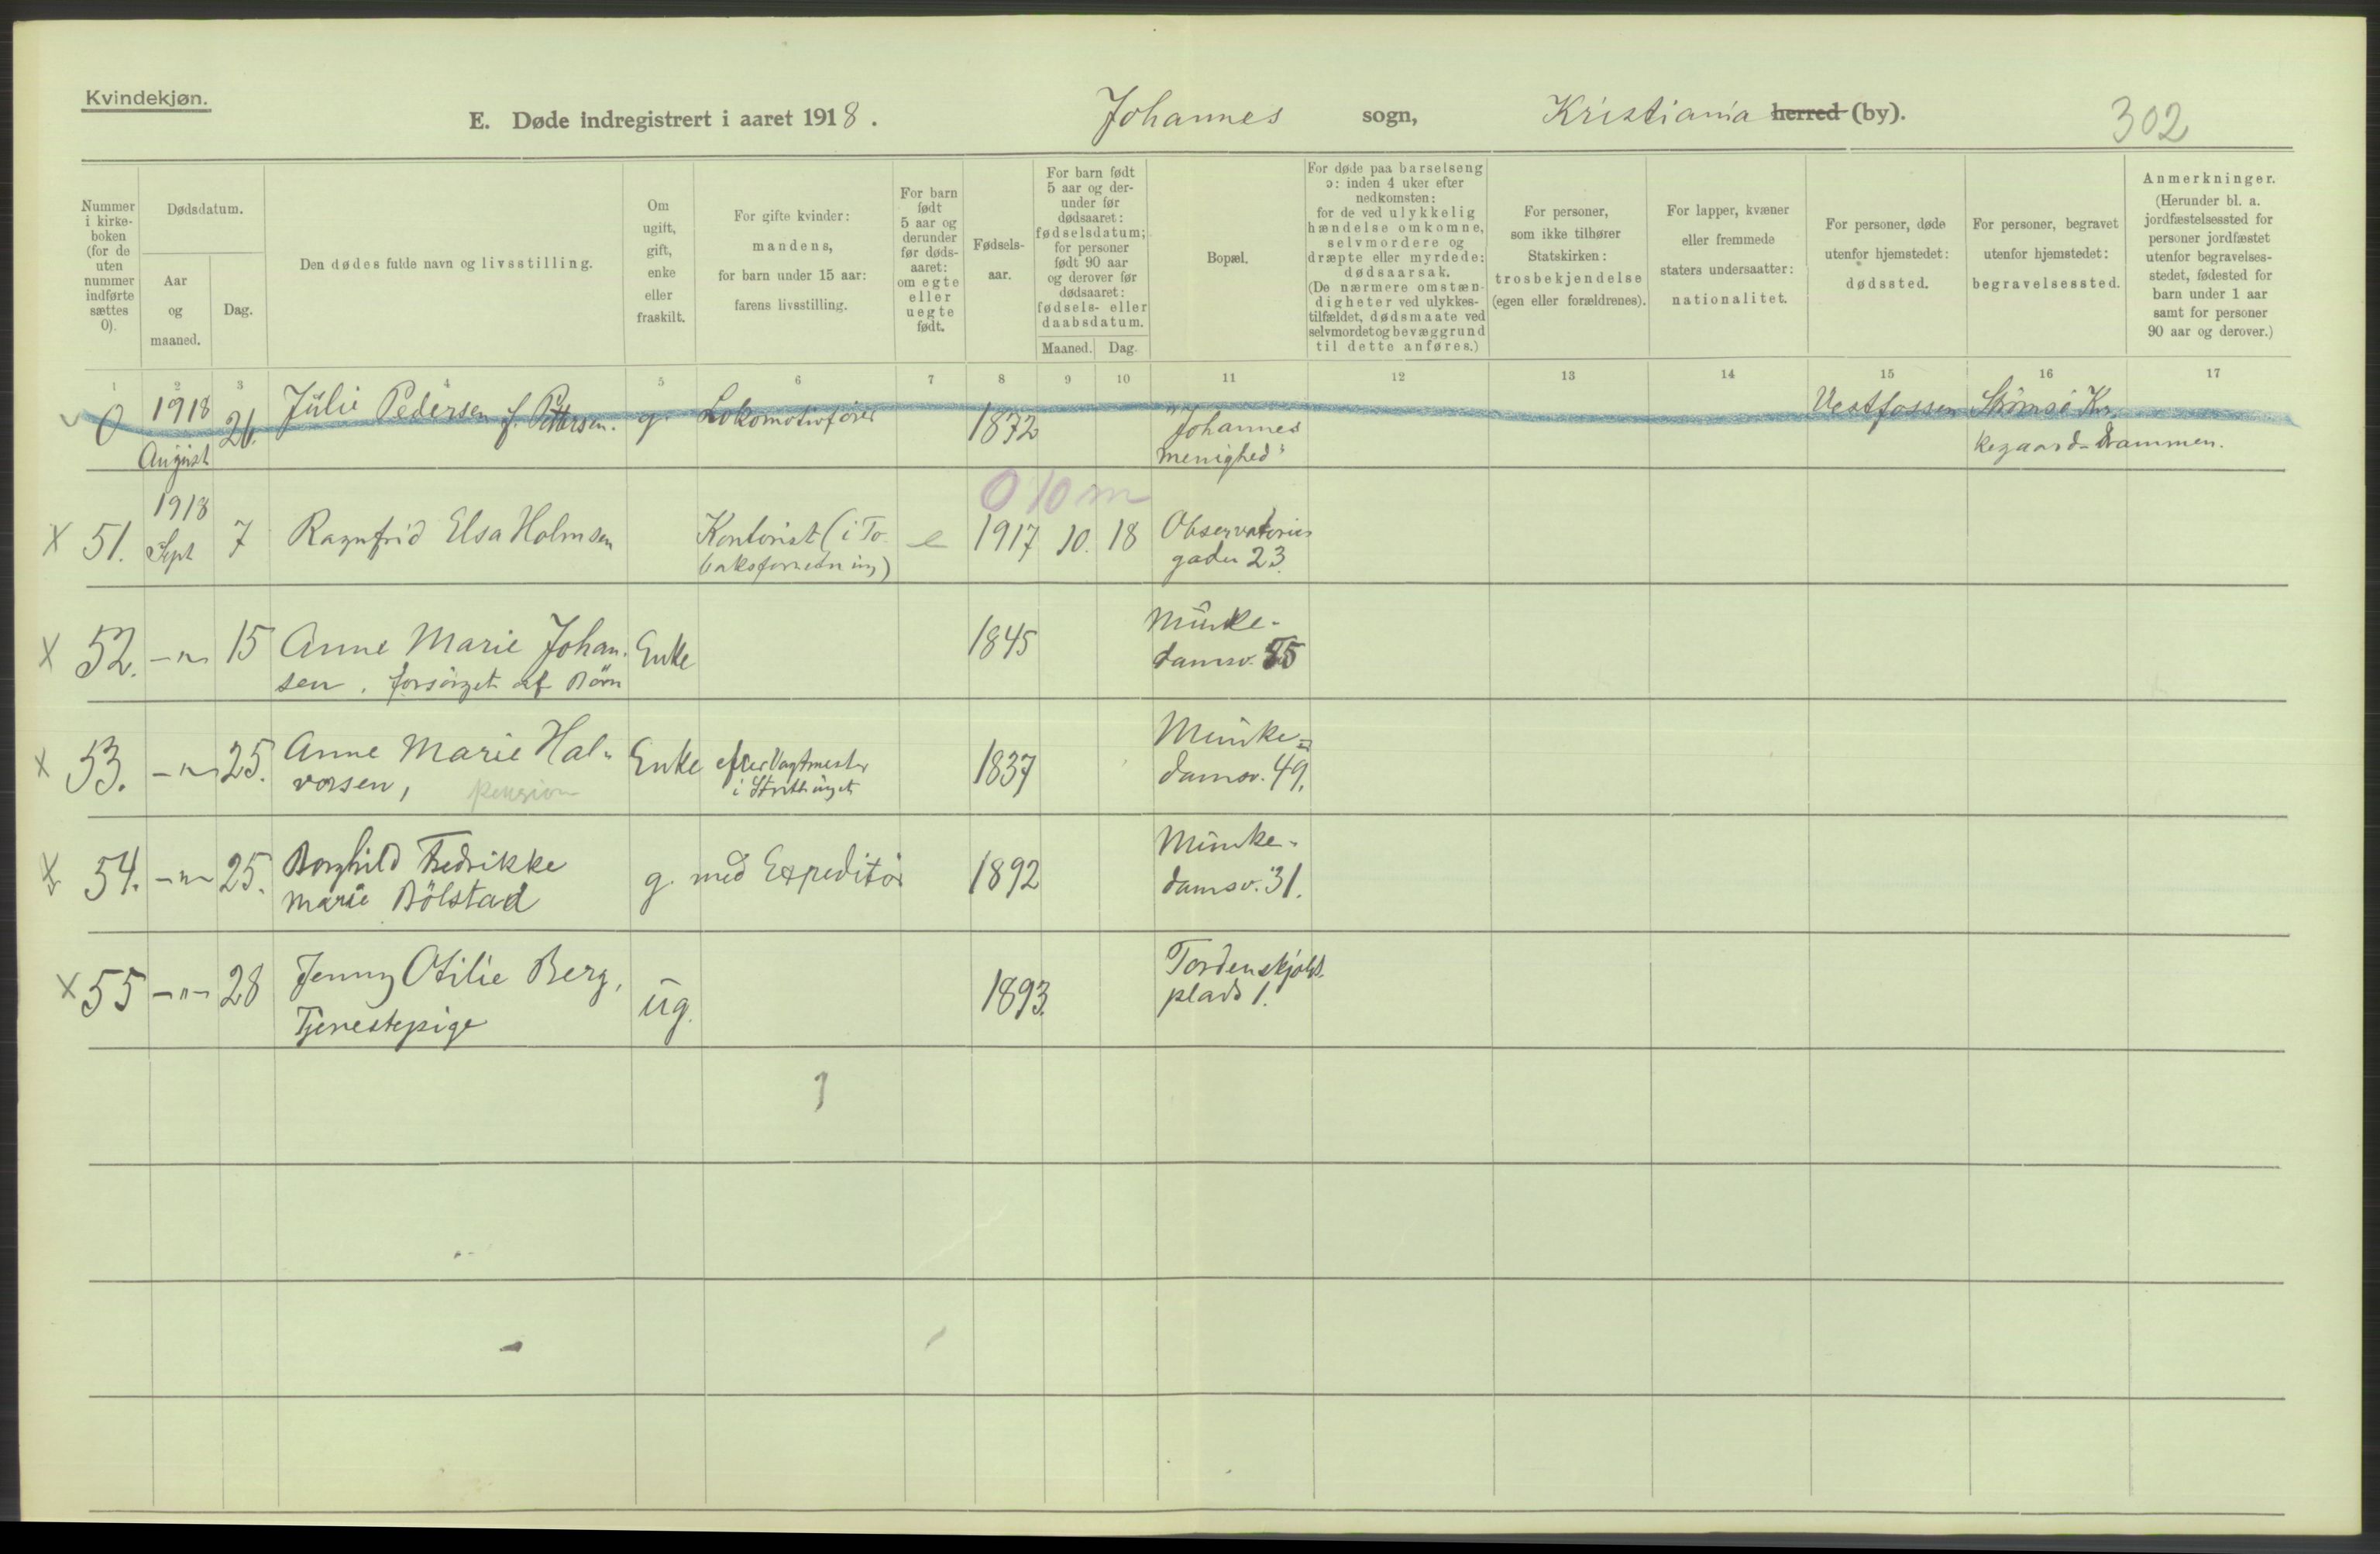 Kvindekjøn.
E. Døde indregistrert i aaret 1918.
Johannes sogn, Kristiania herred (by).
302
Nummer i kirke-boken (for de uten nummer indførte sættes 0).
Dødsdatum.
Aar og maaned.
Dag.
Den dødes fulde navn og livsstilling.
Om ugift, gift, enke eller fraskilt.
For gifte kvinder: mandens, for barn under 15 aar: farens livsstilling.
For barn født 5 aar og derunder før døds-aaret: om egte eller uegte født.
Fødsels-aar.
For barn født 5 aar og der-under før dødsaaret: fødselsdatum; for personer født 90 aar og derover før dødsaaret: fødsels- eller daabsdatum.
Maaned. Dag.
Bopæl.
For døde paa barselseng ɔ: inden 4 uker efter nedkomsten: for de ved ulykkelig hændelse omkomne, selvmordere og dræpte eller myrdede: dødsaarsak. (De nærmere omstæn-digheter ved ulykkes-tilfældet, dødsmaate ved selvmordet og bevæggrund til dette anføres.)
For personer, som ikke tilhører Statskirken: trosbekjendelse (egen eller forældrenes).
For lapper, kvæner eller fremmede staters undersaatter: nationalitet.
For personer, døde utenfor hjemstedet: dødssted.
For personer, begravet utenfor hjemstedet: begravelsessted.
Anmerkninger. (Herunder bl. a. jordfæstelsessted for personer jordfæstet utenfor begravelses-stedet, fødested for barn under 1 aar samt for personer 90 aar og derover.)
1 2 3 4 5 6 7 8 9 10 11 12 13 14 15 16 17
0 1918 August 26. Julie Pedersen f. Pettersen. g. Lokomotivfører 1872 "Johannes menighed" Vestfossen Strømsø Kirkegaard-Drammen.
0 10 m
X 51. 1918 Sept 7 Ragnfrid Elsa Holmsen Kontorist (i To-
baksforretning) e 1917 10. 18 Observatorie
gaden 23.
X 52. -"- 15 Anne Marie Johan-
sen, forsørget af Børn Enke 1845 Munke-
damsv.
X 53. -"- 25. Anne Marie Hal-
vorsen, pension Enke efter Vagtmester
i Storthinget 1837 Munke=
damsv. 49.
X 54. -"- 25. Borghild Fredrikke
Marie Bölstad g. med Expeditør 1892 Munke-
damsv. 31.
X 55 -"- 28 Jenny Otilie Berg,
Tjenestepige ug. 1893. Tordenskjolds
plads 1.